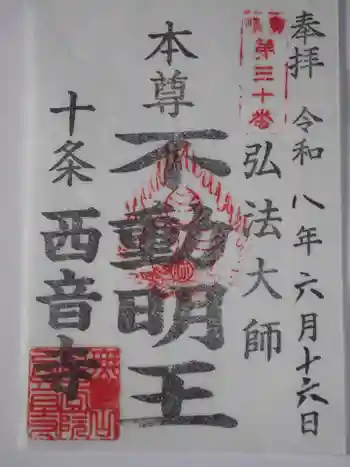 奉拝 令和八年六月十六日
第三十番
弘法大師
本尊
不動明王
十条
西音寺